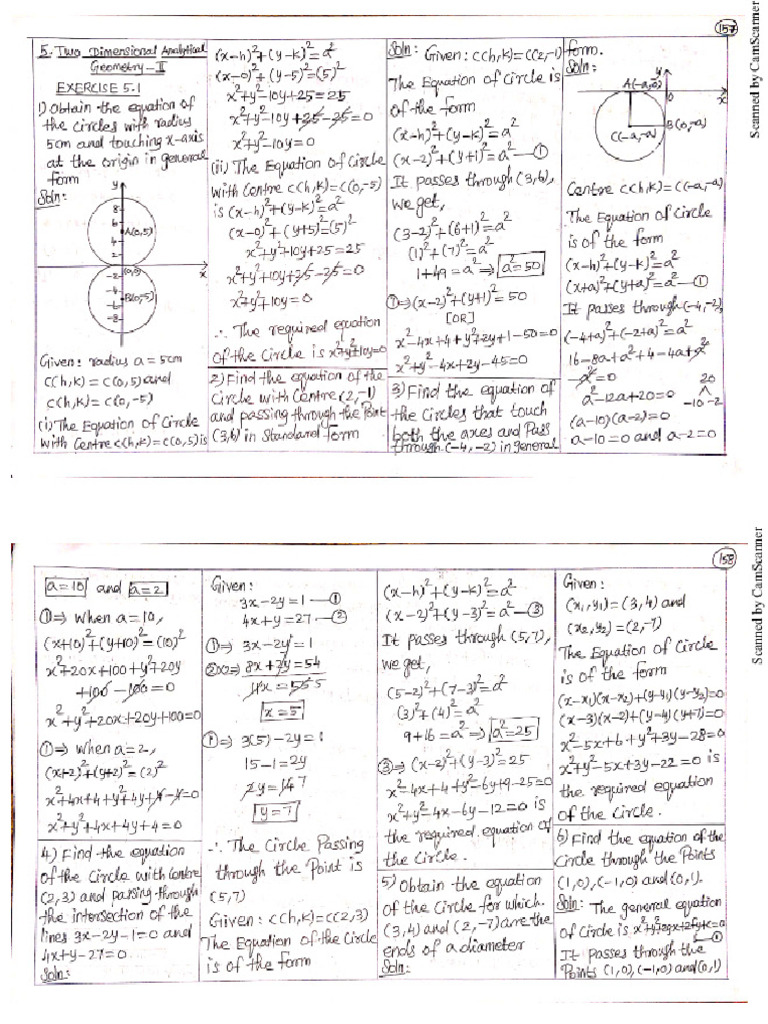 157
5. Two Dimensional Analytical
Geometry-II
EXERCISE 5.1
1) Obtain the equation of
the circles with radius
5cm and touching x-axis
at the origin in general
form
Soln:
y
8
6
4
2
A(0,5)
(0,0)
x
-2
-4
-6
-8
B(0,-5)
Given: radius a = 5cm
C(h,k) = C(0,5) and
C(h,k) = C(0,-5)
(i) The Equation of Circle
with Centre C(h,k)=C(0,5) is
(x-h)²+(y-k)²=a²
(x-0)²+(y-5)²=(5)²
x²+y²-10y+25=25
x²+y²-10y+25-25=0
x²+y²-10y=0
(ii) The Equation of Circle
with Centre C(h,k)=C(0,-5)
is (x-h)²+(y-k)²=a²
(x-0)²+(y+5)²=(5)²
x²+y²+10y+25=25
x²+y²+10y+25-25=0
x²+y²+10y=0
∴ The required equation
of the Circle is x²+y²±10y=0
2) Find the equation of the
Circle with Centre (2,-1)
and passing through the Point
(3,6) in Standard form
Soln: Given: C(h,k)=C(2,-1)
The Equation of Circle is
of the form
(x-h)²+(y-k)²=a²
(x-2)²+(y+1)²=a² —①
It passes through (3,6),
we get,
(3-2)²+(6+1)²=a²
(1)²+(7)²=a²
1+49=a² ⇒ a²=50
①⇒ (x-2)²+(y+1)²=50
[OR]
x²-4x+4+y²+2y+1-50=0
x²+y²-4x+2y-45=0
3) Find the equation of
the Circles that touch
both the axes and Pass
through (-4,-2) in general
form.
Soln:
y
A(-a,0)
0
x
B(0,-a)
C(-a,-a)
Centre C(h,k)=C(-a,-a)
The Equation of Circle
is of the form
(x-h)²+(y-k)²=a²
(x+a)²+(y+a)²=a² —①
It passes through (-4,-2),
(-4+a)²+(-2+a)²=a²
16-8a+a²+4-4a+a²
-a²=0
a²-12a+20=0
20
-10 -2
(a-10)(a-2)=0
a-10=0 and a-2=0
Scanned by CamScanner
158
a=10 and a=2
①⇒ when a=10,
(x+10)²+(y+10)²=(10)²
x²+20x+100+y²+20y
+100-100=0
x²+y²+20x+20y+100=0
①⇒ when a=2,
(x+2)²+(y+2)²=(2)²
x²+4x+4+y²+4y+4-4=0
x²+y²+4x+4y+4=0
4) Find the equation
of the Circle with Centre
(2,3) and passing through
the intersection of the
lines 3x-2y-1=0 and
4x+y-27=0.
Soln:
Given:
3x-2y=1 —①
4x+y=27 —②
①⇒ 3x-2y=1
②×2⇒ 8x+2y=54
11x=55 5
x=5
①⇒ 3(5)-2y=1
15-1=2y
2y=14 7
y=7
∴ The Circle Passing
through the Point is
(5,7)
Given: C(h,k)=C(2,3)
The Equation of the Circle
is of the form
(x-h)²+(y-k)²=a²
(x-2)²+(y-3)²=a² —③
It passes through (5,7),
we get,
(5-2)²+(7-3)²=a²
(3)²+(4)²=a²
9+16=a² ⇒ a²=25
③⇒ (x-2)²+(y-3)²=25
x²-4x+4+y²-6y+9-25=0
x²+y²-4x-6y-12=0 is
the required equation of
the Circle.
5) Obtain the equation
of the Circle for which
(3,4) and (2,-7) are the
ends of a diameter
Soln:
Given:
(x₁,y₁)=(3,4) and
(x₂,y₂)=(2,-7)
The Equation of Circle
is of the form
(x-x₁)(x-x₂)+(y-y₁)(y-y₂)=0
(x-3)(x-2)+(y-4)(y+7)=0
x²-5x+6+y²+3y-28=0
x²+y²-5x+3y-22=0 is
the required equation
of the Circle.
6) Find the equation of the
Circle through the Points
(1,0), (-1,0) and (0,1).
Soln: The general equation
of Circle is x²+y²+2gx+2fy+c=0
—①
It passes through the
Points (1,0), (-1,0) and (0,1)
Scanned by CamScanner